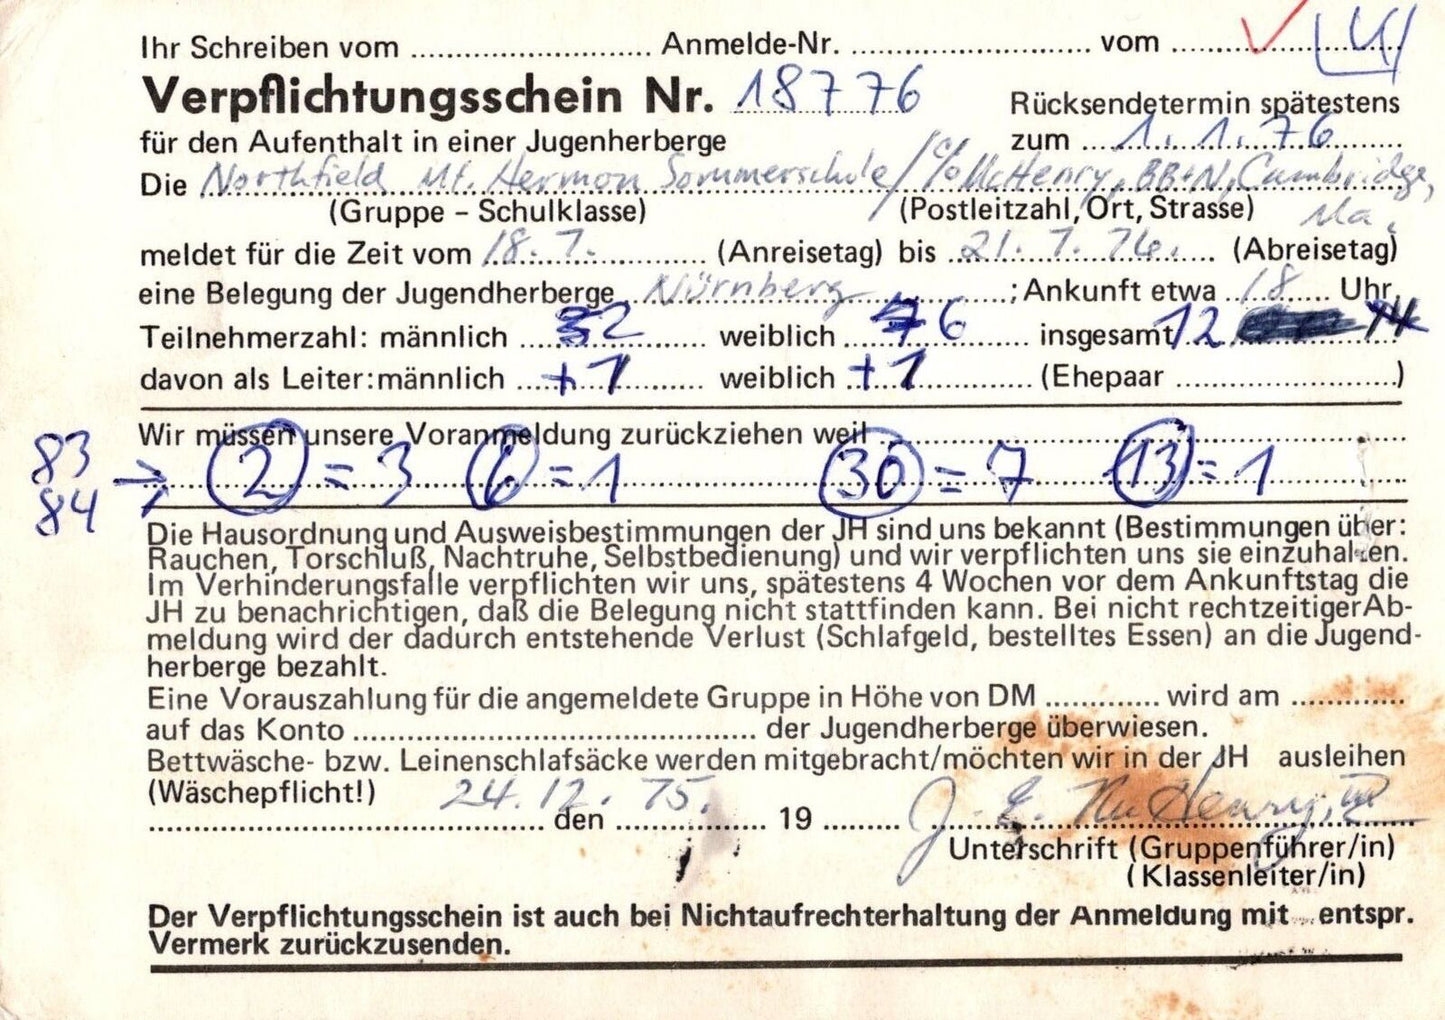 Ihr Schreiben vom ............................ Anmelde-Nr. ............................ vom ............................
Verpflichtungsschein Nr. 18776 Rücksendetermin spätestens
für den Aufenthalt in einer Jugenherberge zum 1.1.76
Die Northfield Mt. Hermon Sommerschule / c/o McHenry, BB+N, Cambridge,
(Gruppe – Schulklasse) (Postleitzahl, Ort, Strasse) Ma.
meldet für die Zeit vom 18.7. (Anreisetag) bis 21.7.76. (Abreisetag)
eine Belegung der Jugendherberge Nürnberg ; Ankunft etwa 18 Uhr
Teilnehmerzahl: männlich 2 weiblich 6 insgesamt 12
davon als Leiter: männlich +1 weiblich +1 (Ehepaar ............................)
Wir müssen unsere Voranmeldung zurückziehen weil ............................
83
84 → 2 = 3 6 = 1 30 = 7 13 = 1
Die Hausordnung und Ausweisbestimmungen der JH sind uns bekannt (Bestimmungen über:
Rauchen, Torschluß, Nachtruhe, Selbstbedienung) und wir verpflichten uns sie einzuhalten.
Im Verhinderungsfalle verpflichten wir uns, spätestens 4 Wochen vor dem Ankunftstag die
JH zu benachrichtigen, daß die Belegung nicht stattfinden kann. Bei nicht rechtzeitiger Ab-
meldung wird der dadurch entstehende Verlust (Schlafgeld, bestelltes Essen) an die Jugend-
herberge bezahlt.
Eine Vorauszahlung für die angemeldete Gruppe in Höhe von DM ............. wird am .............
auf das Konto ............................ der Jugendherberge überwiesen.
Bettwäsche- bzw. Leinenschlafsäcke werden mitgebracht/möchten wir in der JH ausleihen
(Wäschepflicht!) 24.12.75. J. E. McHenry, III
............................ den ................ 19 ......... ............................
Unterschrift (Gruppenführer/in)
(Klassenleiter/in)
Der Verpflichtungsschein ist auch bei Nichtaufrechterhaltung der Anmeldung mit entspr.
Vermerk zurückzusenden.